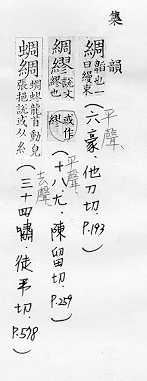 集韻
綢 韜也一曰纏束 平聲 (六豪.他刀切 P.193)
綢繆 說文繆也 或作 平聲 (十八尤.陳留切.P.259)
蜩綢 蜩蟉龍首動皃張挹說或从糸 去聲 (三十四嘯.徒弔切.P.578)